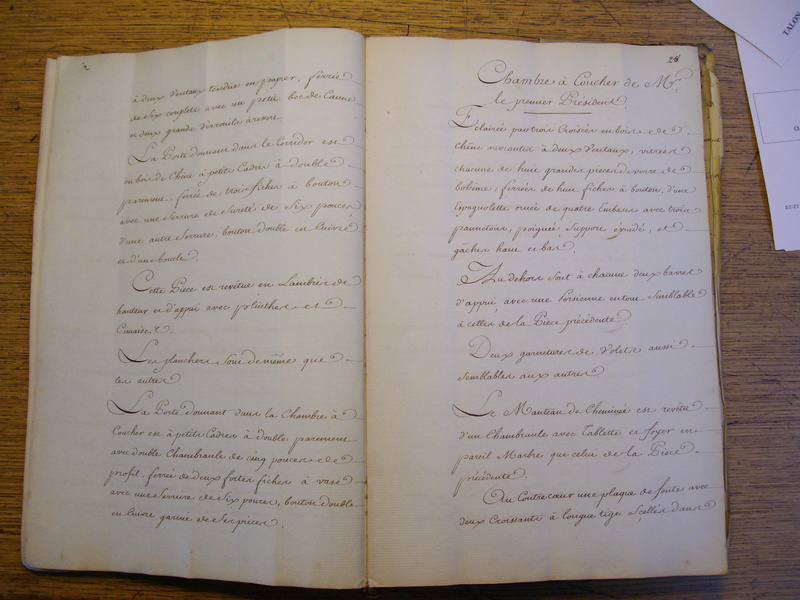 à deux Ventaux tendus en papier, ferrée
de six couplets avec un petit bec de Canne
et deux grands Verrouils à ressort.
La Porte donnant dans le Corridor est
en bois de Chêne à petits Cadres à double
parement, ferrée de trois fiches à bouton
avec une Serrure de Sureté de Six pouces
d'une autre Serrure, bouton double en Cuivre
et d'une boucle.
Cette Piece est revêtue en Lambris de
hauteur et d'appui avec plinthes et
Cimaise &.
Les planchers sont de même que
les autres
La Porte donnant dans la Chambre à
Coucher est à petits Cadres à double parement
avec double Chambranle de cinq pouces de
profil, ferrée de deux fortes fiches à vase
avec une Serrure de Six pouces, bouton double
en Cuivre garnie de ses pièces.
28
Chambre à Coucher de Mr.
le premier Président
Eclairée par trois Croisées en bois de
chêne ouvrantes à deux Ventaux, vitrées
chacune de huit grandes pieces de verre de
boheme, ferrées de huit fiches à bouton, d'une
Espagnolette ornée de quatre Embases avec trois
pannetons, poignée, Support évuidé, et
gâches haut et bas.
Au dehors sont à chacune deux barres
d'appui, avec une Persienne en tout Semblable
à celles de la Piece précédente
Deux garnitures de Volets aussi
semblables aux autres
Le Manteau de Cheminée est revêtu
d'un Chambranle avec Tablette et foyer en
pareil Marbre que celui de la Piece
précédente.
Au Contrecœur une plaque de fonte avec
deux Croissants à longue tige Scellés dans
TALON